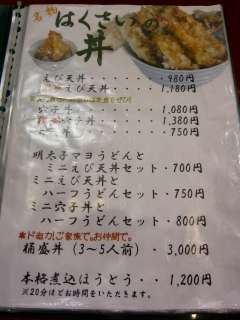 名物
はくさいの
丼
えび天丼・・・・・・980円
えび天丼・・・・1,180円
穴子天丼・・・・・1,080円
穴子丼・・・・1,380円
丼・・・・・・750円
明太子マヨうどんと
ミニえび天丼セット・・700円
ミニえび天丼と
ハーフうどんセット・・750円
ミニ穴子丼と
ハーフうどんセット・・800円
桶盛丼(3～5人前)・3,000円
本格煮込ほうとう・・1,200円
※20分ほどお時間をいただきます。